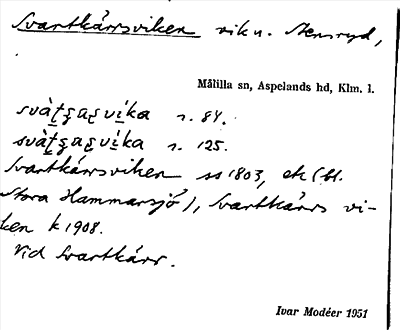 Svartkärrsviken vik n. Stensryd,
Målilla sn, Aspelands hd, Klm. l.
svàt̠ʂaʂvi̠ka n. 84.
svàt̠ʂaʂvi̠ka n. 125.
Svartkärrsviken ss 1803, ek (bl.
Stora Hammarsjö), Svartkärrs vi-
ken k 1908.
Vid Svartkärr.
Ivar Modéer 1951